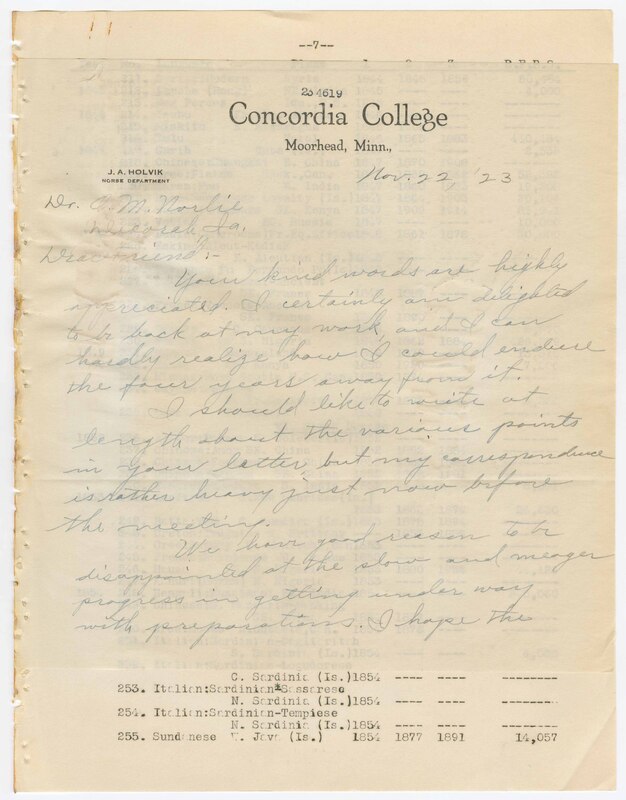 --7--
234619
Concordia College
Moorhead, Minn.,
J. A. HOLVIK
NORSE DEPARTMENT
Nov. 22, '23
Dr. O. M. Norlie
Decorah, Ia.
Dear Friend:-
Your kind words are highly
appreciated. I certainly am delighted
to be back at my work, and I can
hardly realize how I could endure
the four years away from it.
I should like to write at
length about the various points
in your letter but my correspondence
is rather heavy just now before
the meeting.
We have good reason to be
disappointed at the slow and meager
progress in getting under way
with preparations. I hope the
C. Sardinia (Is.)1854 ---- ---- --------
253. Italian:Sardinian-Sassarese
N. Sardinia (Is.)1854 ---- ---- --------
254. Italian:Sardinian-Tempiese
N. Sardinia (Is.)1854 ---- ---- --------
255. Sundanese W. Java (Is.) 1854 1877 1891 14,057